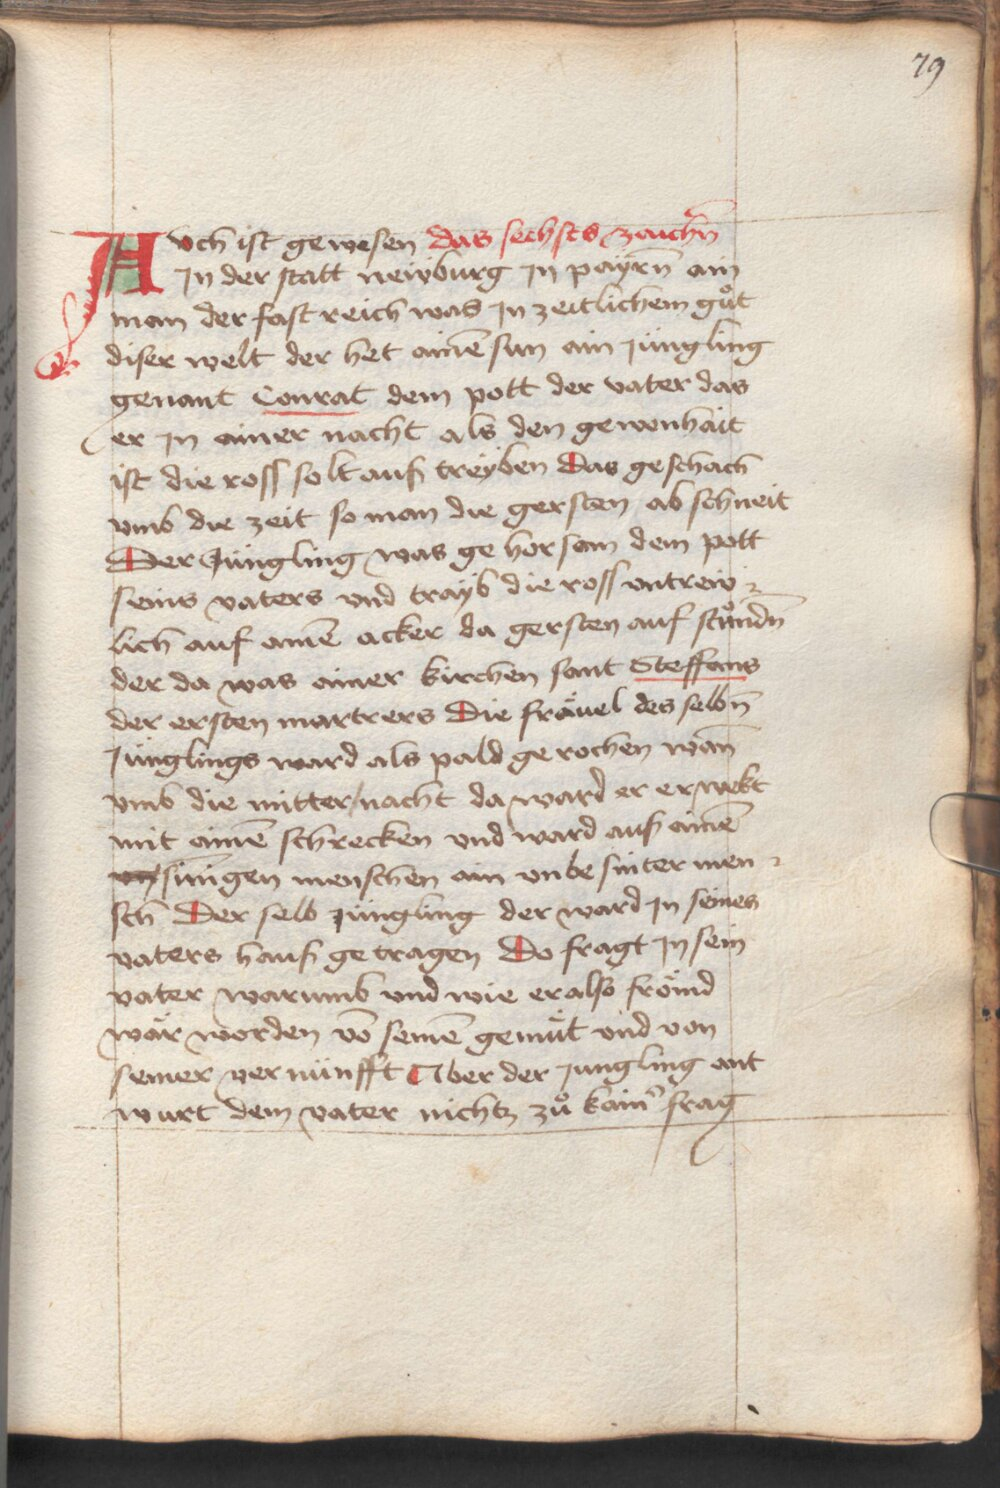 79
Avch ist gewesen das sechsts zaichñ
In der statt newburg in payrñ ain
man der fast reich was in zeitlichem gůt
diser welt der het ainē sun ain jüngling
genant Conrat dem pott der vater das
er in ainer nacht als den gewonhait
ist die ross solt auß treyben Das geschach
vmb die zeit so man die gersten ab schneit
Der Jüngling was ge horsam dem pott
seins vaters vnd trayb die ross vntrew
lich auf ainē acker da gersten auf stůndñ
der da was ainer kirchen sant Steffans
der ersten martrers Die fräuel des selbñ
Jünglings ward als pald ge rochen wañ
vmb die mitter nacht da ward er erwekt
mit ainē schrecken vnd ward auß ainē
sinnigen menschen ain vnbe sinter men
sch Der selb Jüngling der ward in seines
vaters hauß ge tragen Do fragt in sein
vater warumb vnd wie er also frömd
wär worden vō seinē gemüt vnd von
seiner vernünfft Aber der Jungling ant
wurt dem vater nichtz zů kainr frag